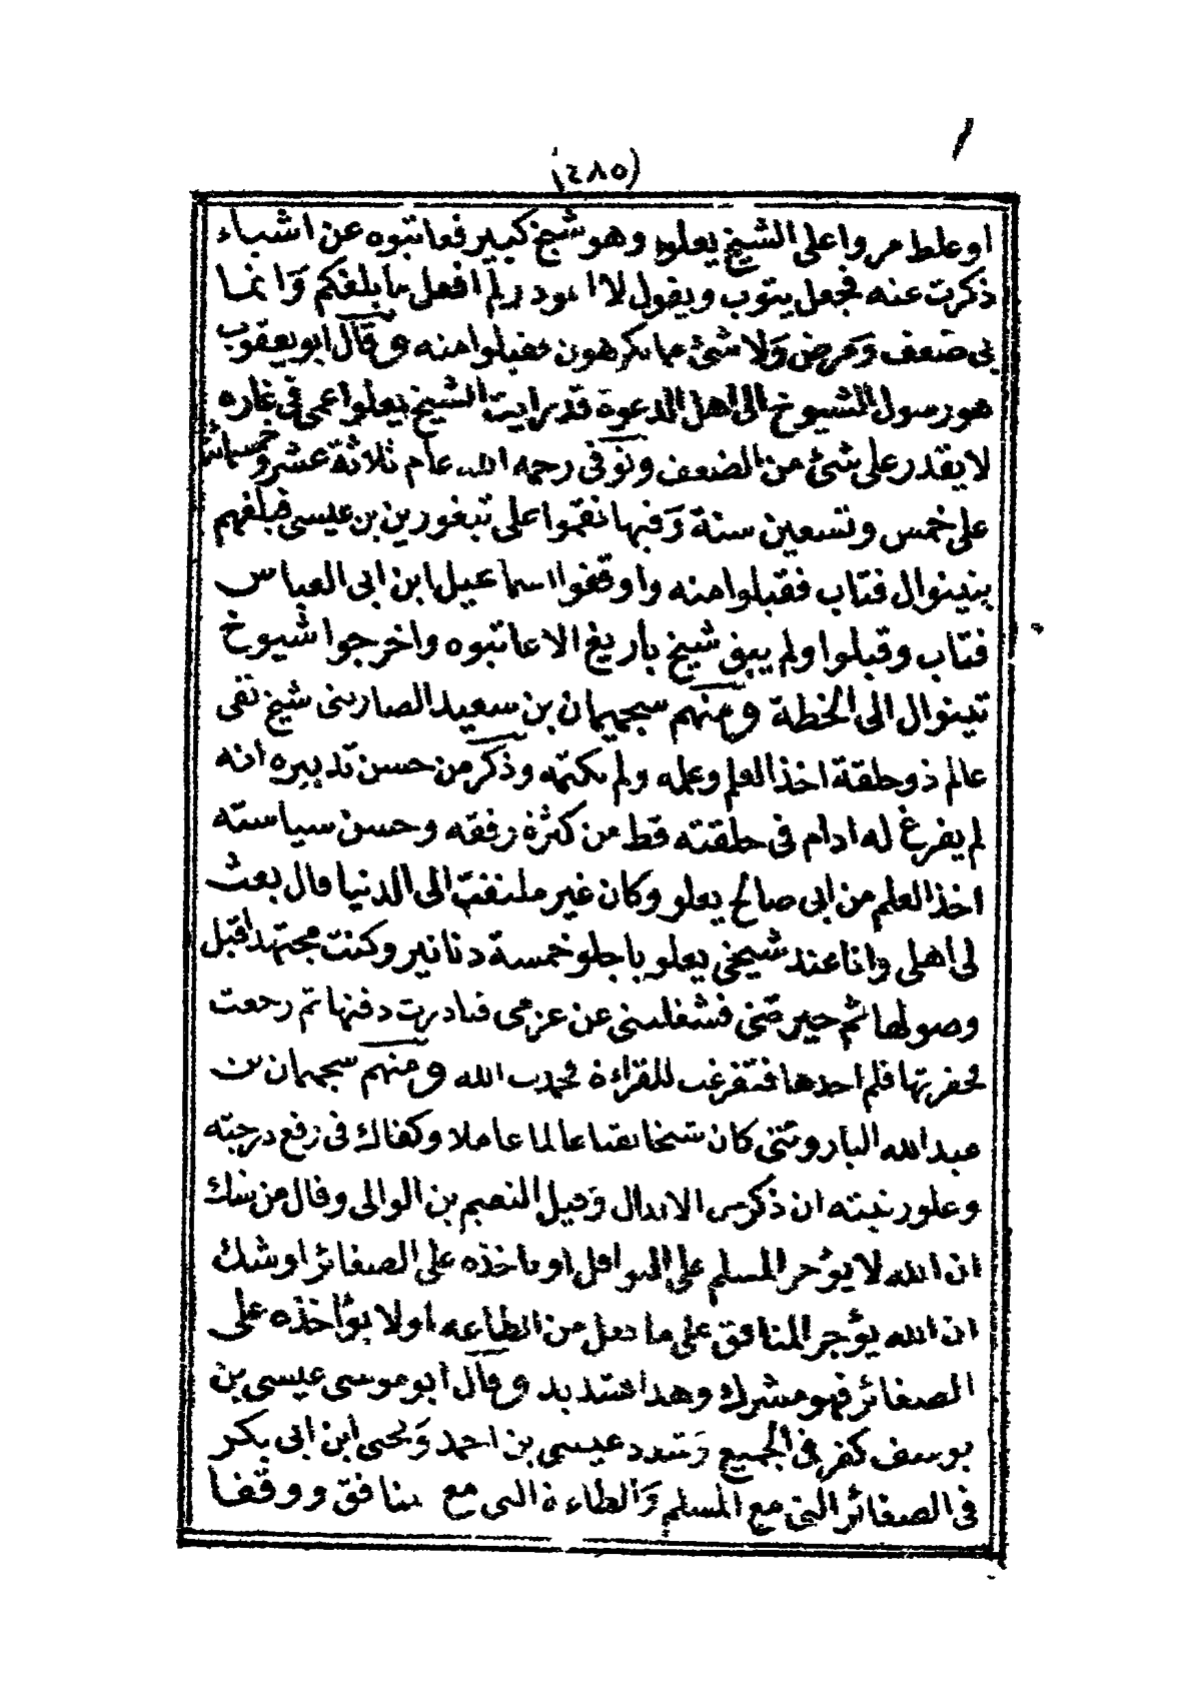 (٤٨٥)
او غلط مروا على الشيخ يعلو وهو شيخ كبير فعاتبوه عن اشياء
ذكرت عنه فجعل يتوب ويقول لا اعود ولم افعل ما بلغكم وَانما
بى ضعف وَمرض وَلا شئ مما تكرهون فقبلوا منه وقال ابو يعقوب
هو رسول الشيوخ الى اهل الدعوة قد رايت الشيخ يعلو اعمى فى غاره
لا يقدر على شئ من الضعف وتوفى رحمه الله عام ثلاثة عشر وخمسمائة
على خمس وتسعين سنة وَفيها نقموا على تبغورين بن عيسى فبلغهم
بتينوال فتاب فقبلوا منه واوقفوا اسماعيل ابن ابى العباس
فتاب وقبلوا ولم يبق شيخ باريغ الا عاتبوه واخرجوا شيوخ
تينوال الى الخطة ومنهم سجميمان بن سعيد الصارينى شيخ تقى
عالم ذو حلقة اخذ العلم وعمله ولم يكتمه وذكر من حسن تدبيره انه
لم يفرغ له ادام فى حلقته قط من كثرة رفقه وحسن سياسته
اخذ العلم من ابى صالح يعلو وكان غير ملتفت الى الدنيا قال بعث
لى اهلى وانا عند شيخى يعلو باجلو خمسة دنانير وكنت مجتهدا قبل
وصولها ثم حيرتنى فشغلتنى عن عزمى فبادرت دفنها ثم رجعت
فحفرتها فلم اجدها فتفرغت للقراءة فحمدت الله ومنهم سجميمان بن
عبد الله البارونتنى كان شيخا تقيا عالما عاملا وكفاك فى رفع درجته
وعلو رتبته ان ذكر من الابدال وَقيل النصيم بن الوالى وقال من شك
ان الله لا يؤجر المسلم على النوافل او ياخذه على الصغائر او شك
ان الله يؤجر المنافق على ما فعل من الطاعه او لا يؤاخذه على
الصغائر فهو مشرك وهذا تشديد وقال ابو موسى عيسى بن
يوسف كفر فى الجميع وَشدد عيسى بن احمد وَيحيى ابن ابى بكر
فى الصغائر التى مع المسلم وَالطاعة التى مع منافق ووقفا